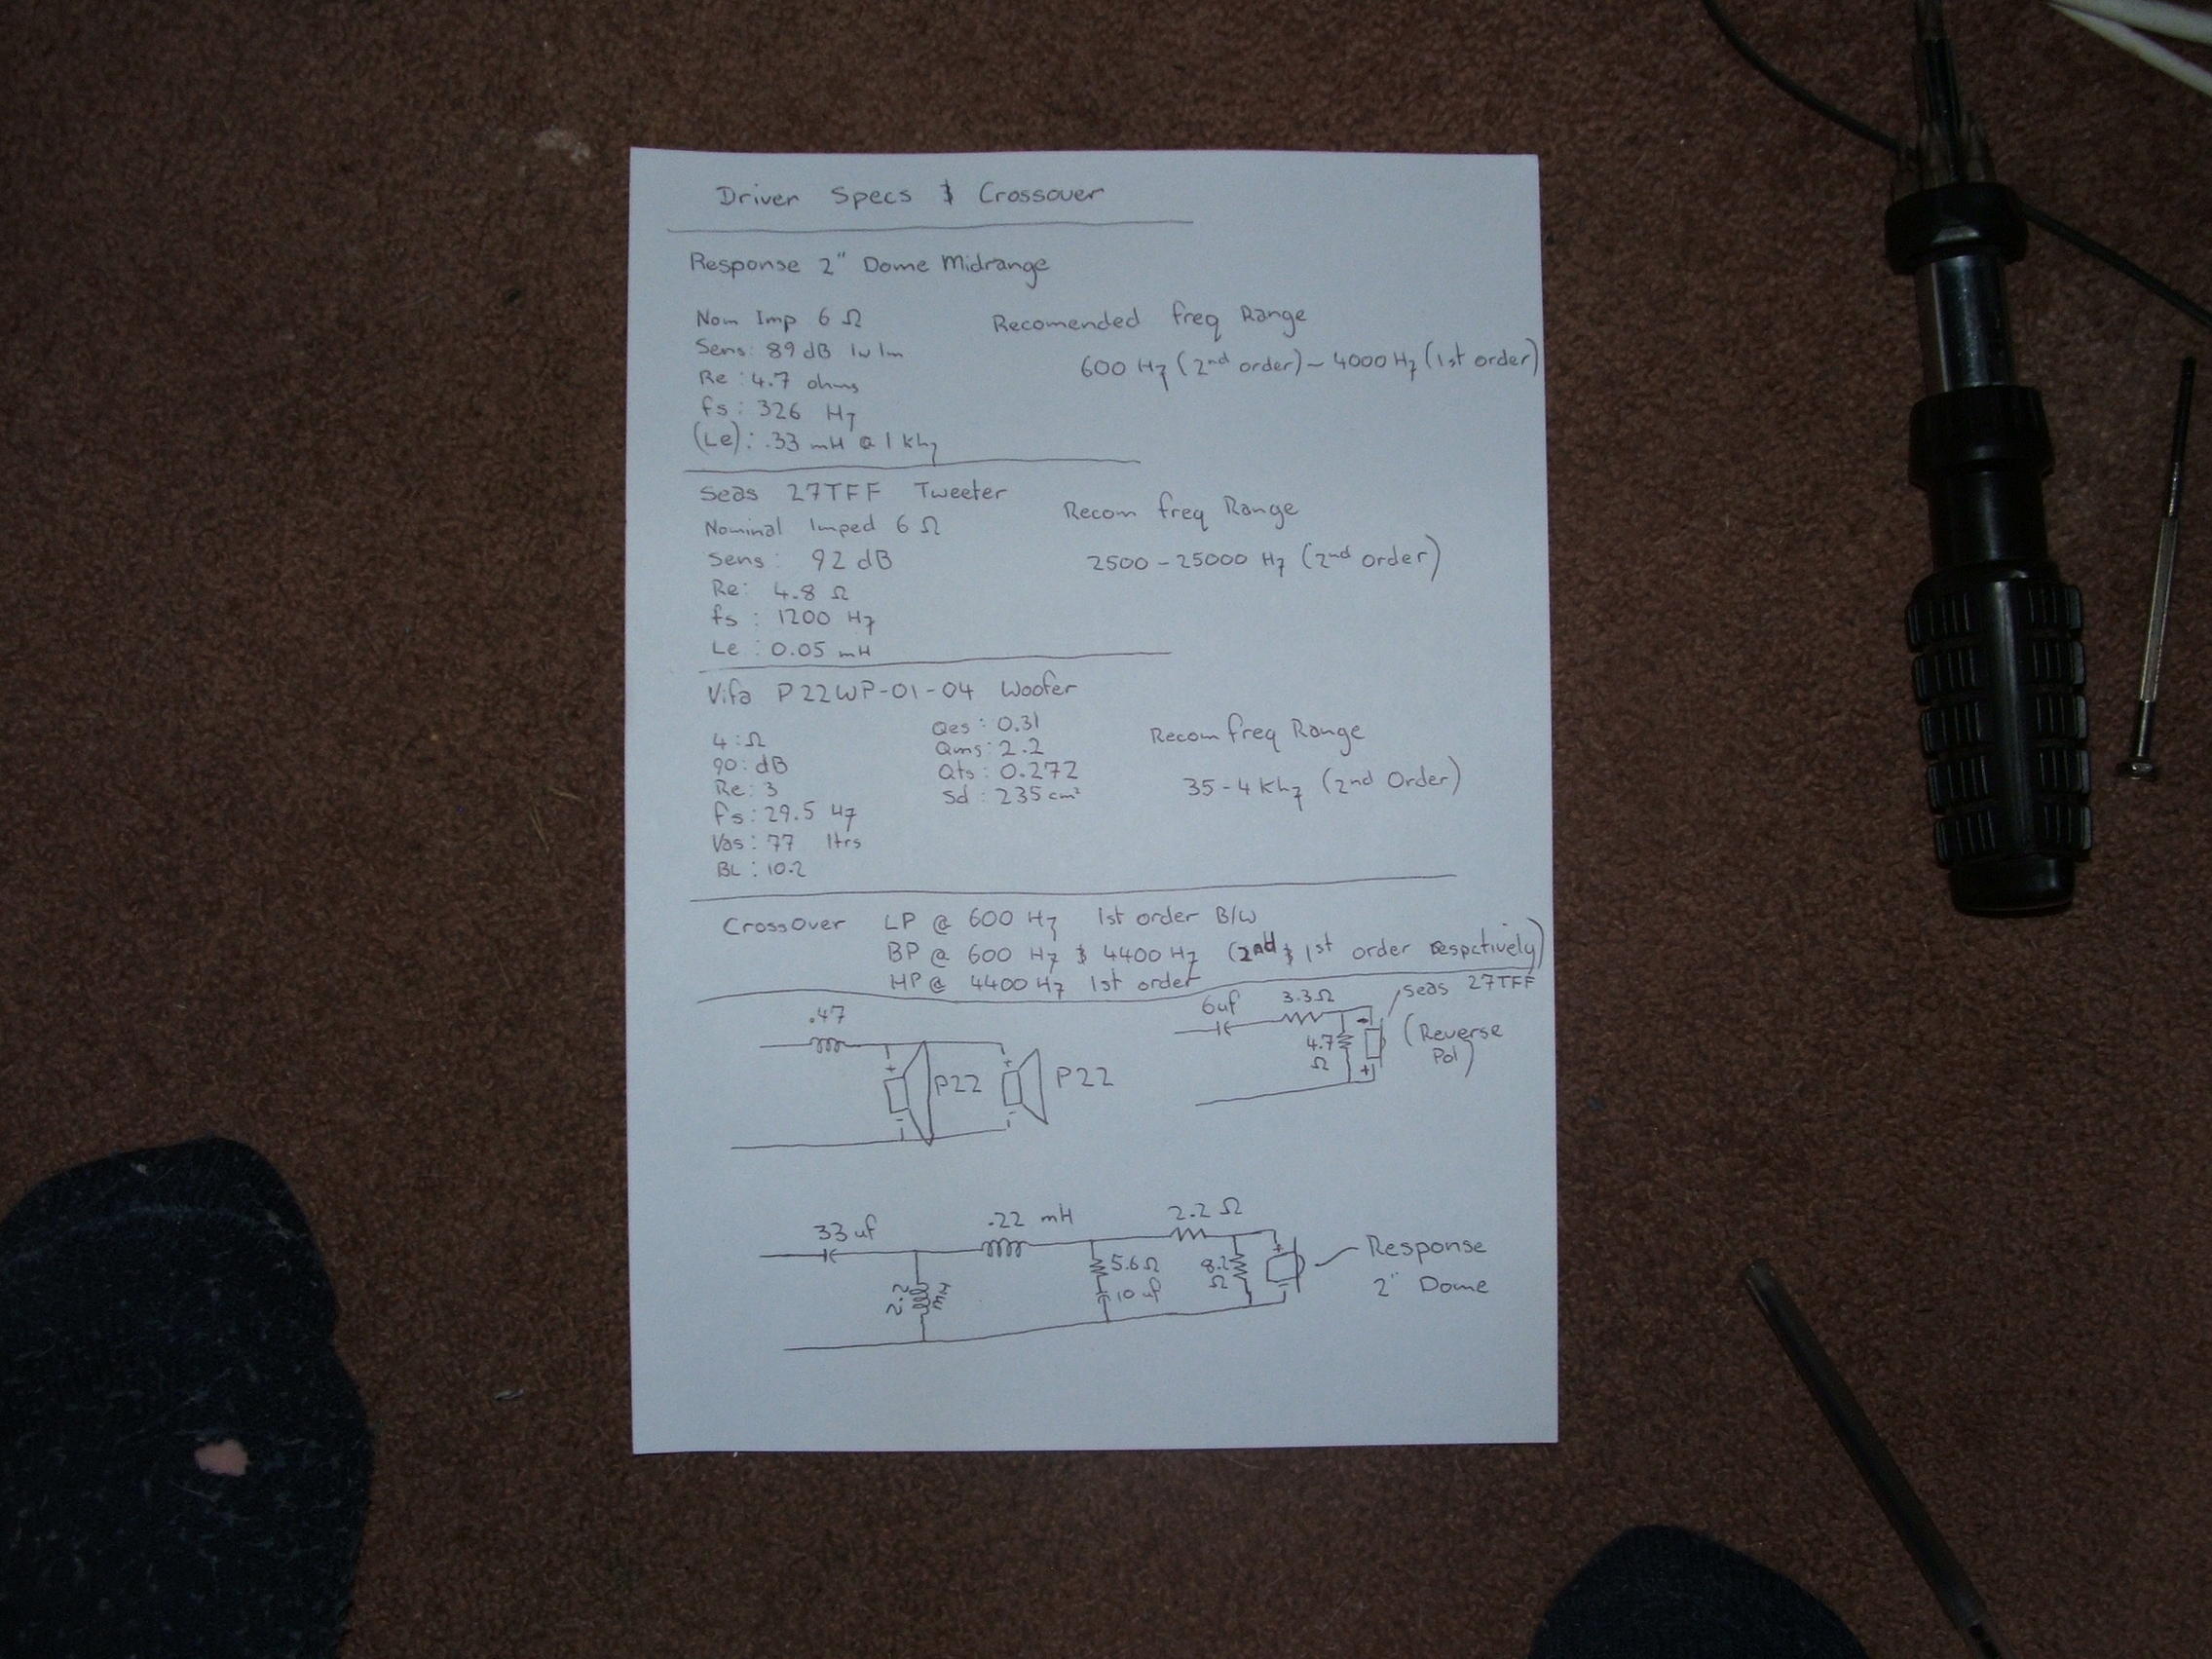 Driver Specs & Crossover
Response 2" Dome Midrange
Nom Imp 6 Ω
Sens: 89 dB 1w 1m
Re : 4.7 ohms
fs : 326 Hz
(Le) : .33 mH @ 1 khz
Recomended freq Range
600 Hz (2nd order) - 4000 Hz (1st order)
Seas 27TFF Tweeter
Nominal Imped 6 Ω
Sens : 92 dB
Re: 4.8 Ω
fs : 1200 Hz
Le : 0.05 mH
Recom freq Range
2500 - 25000 Hz (2nd order)
Vifa P22WP-01-04 Woofer
4 : Ω
90 : dB
Re : 3
fs : 29.5 Hz
Vas : 77 ltrs
BL : 10.2
Qes : 0.31
Qms : 2.2
Qts : 0.272
Sd : 235 cm²
Recom freq Range
35 - 4 Khz (2nd Order)
CrossOver LP @ 600 Hz 1st order B/W
BP @ 600 Hz & 4400 Hz (2nd & 1st order respctively)
HP @ 4400 Hz 1st order
.47
+
-
P22
+
-
P22
6uf
3.3Ω
4.7
Ω
-
+
Seas 27TFF
(Reverse
Pol)
33 uf
2.2
mH
.22 mH
5.6Ω
10 uf
2.2 Ω
8.2
Ω
+
-
Response
2" Dome